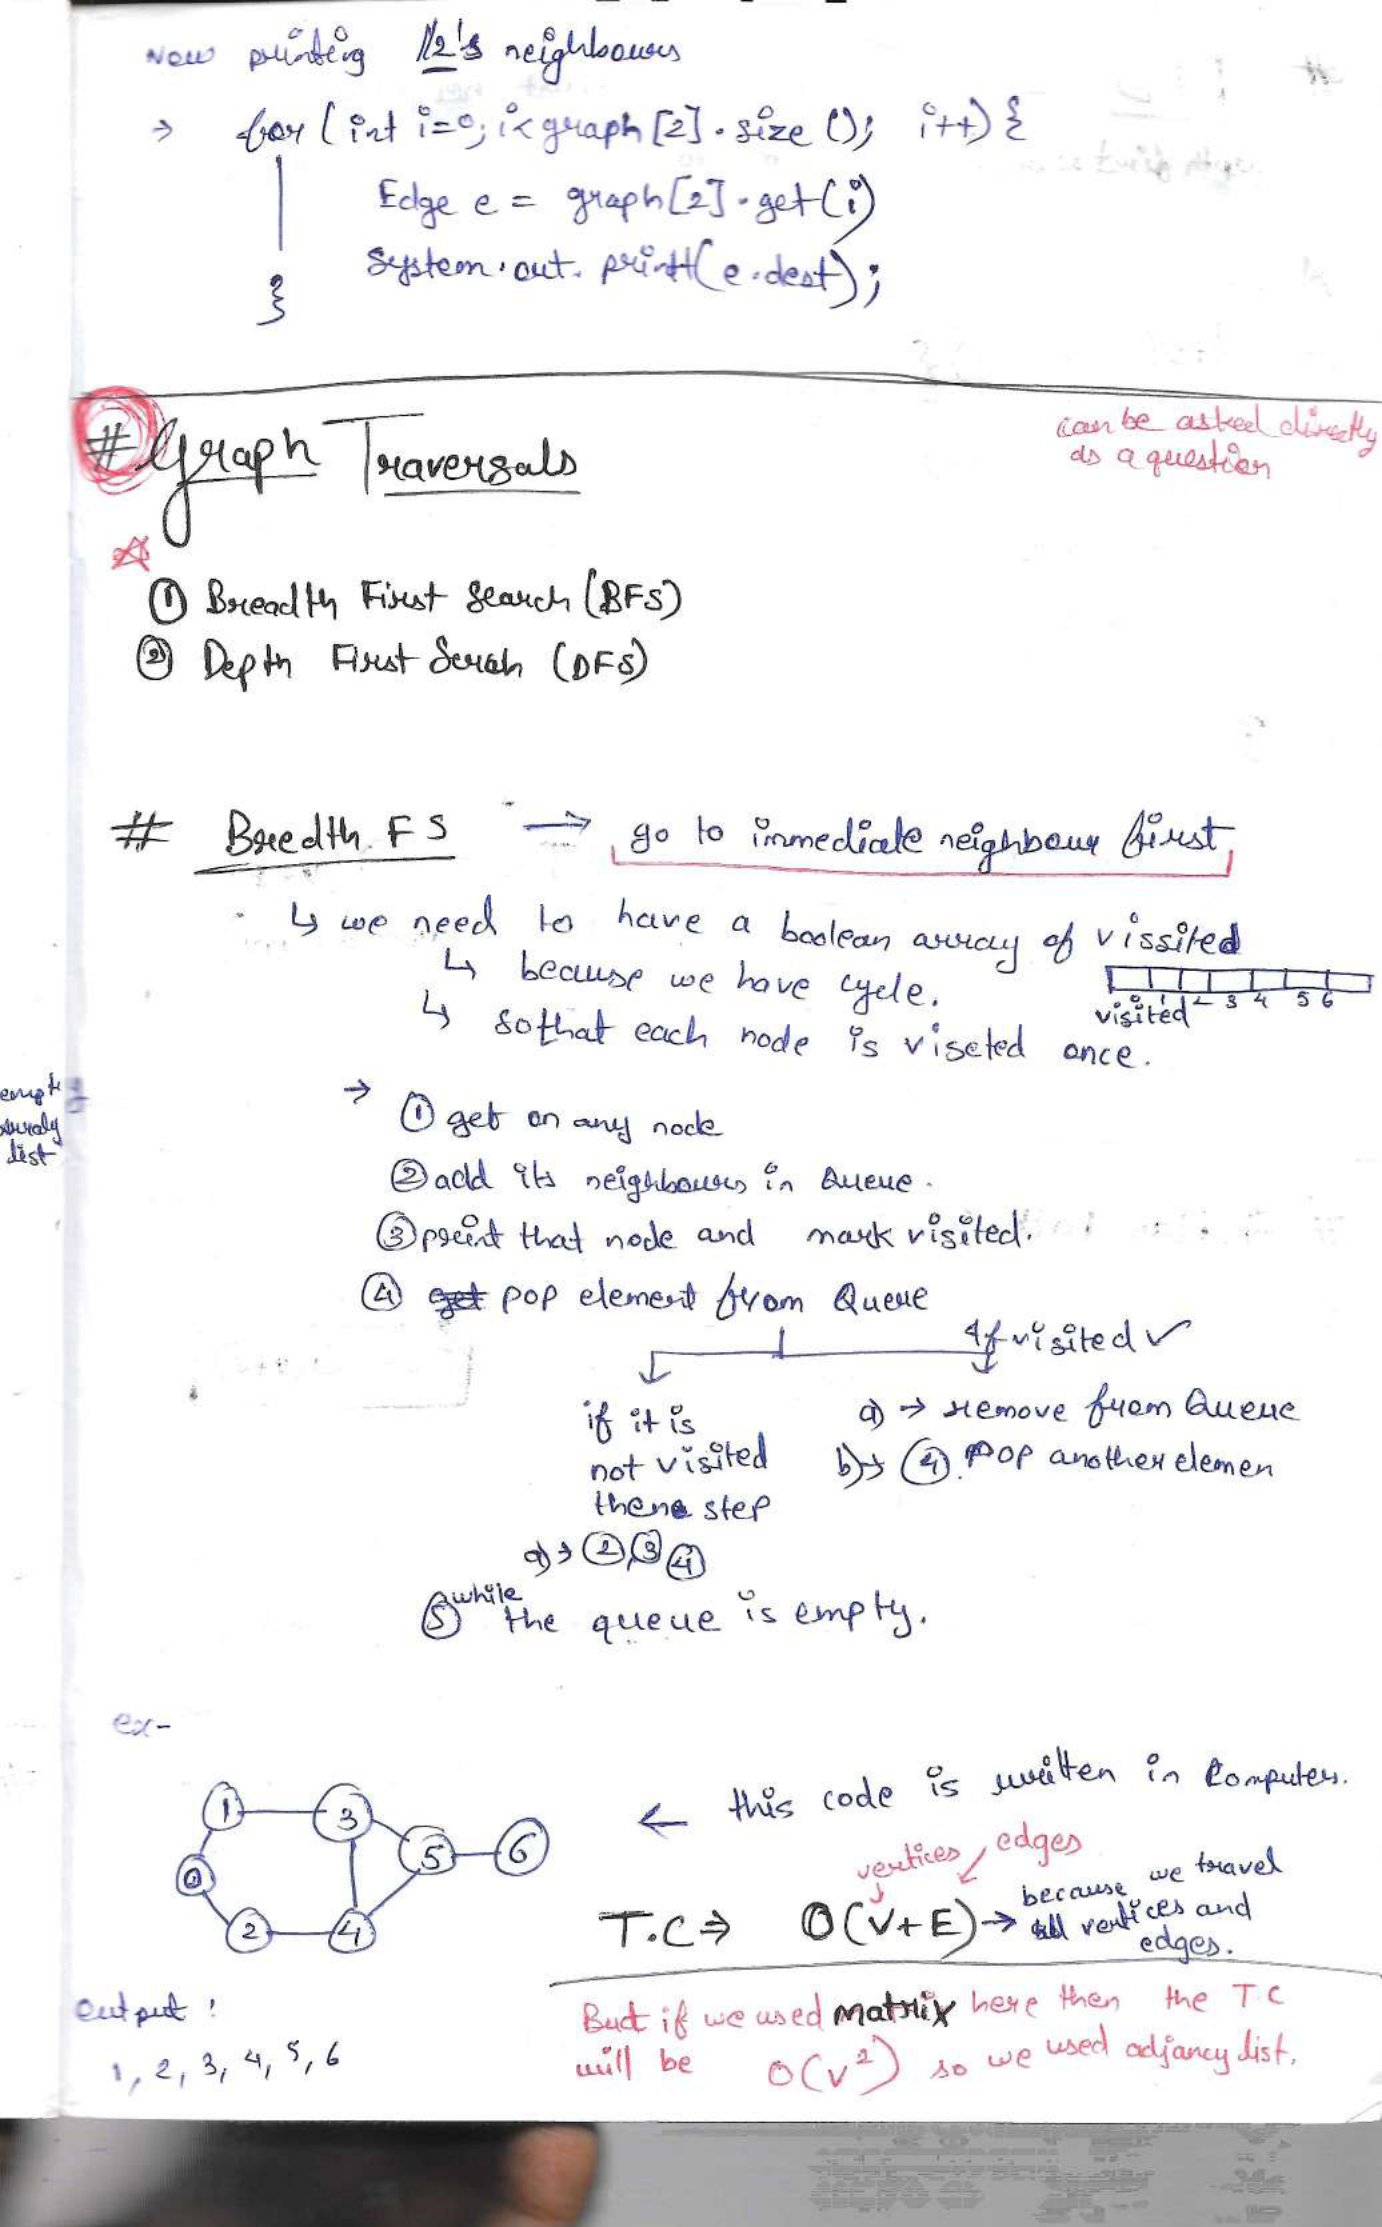 Now printing 1/2's neighbours
→ for (int i=0; i<graph[2].size (); i++) {
Edge e = graph[2].get(i)
System.out.print(e.dest);
}
# Graph Traversals
can be asked directly
as a question
① Breadth First Search (BFS)
② Depth First Serah (DFS)
# Bredth FS → go to immediate neighbour first
↳ we need to have a boolean array of vissited
↳ because we have cycle.
visited 0 1 2 3 4 5 6
↳ so that each node is viseted once.
→ ① get on any node
② add its neighbours in Queue.
③ print that node and mark visited.
④ get pop element from Queue
if it is
not visited
then step
a)→ ②,③ ④
If visited ✓
a) → remove from Queue
b)→ ④. Pop another elemen
⑤ while the queue is empty.
list
ex-
1 3 5 6 0 2 4
← this code is written in Computer.
vertices, edges
T.C ⇒ O(V+E) → because we travel
all vertices and
edges.
output :
1, 2, 3, 4, 5, 6
But if we used matrix here then the TC
will be O(v²) so we used adjancy list.